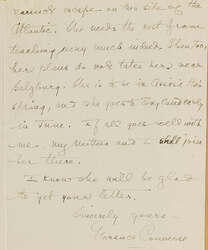 cannot escape on this side of the
Atlantic. She needs the rest from
teaching very much indeed.
her plans do not take her near
Salzburg. She is to be in Assisi this
spring, and she goes to England early
in June. If all goes well with
me, my mother and I shall join
her there.
I know she will be glad
to get your letter.
Sincerely yours
Florence Converse